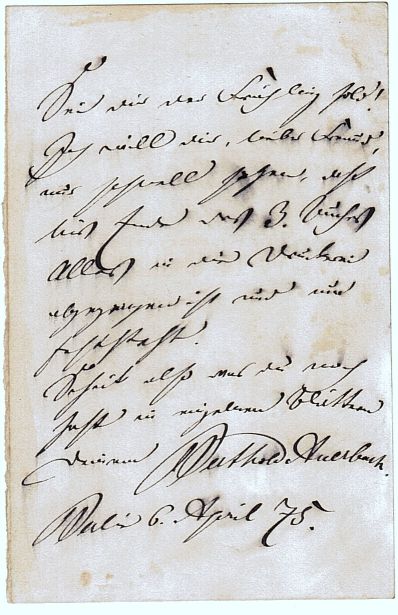 Sei dir der Frühling hold!
Ich will dir, lieber Freund,
nur schnell sagen, daß
bis Ende des 3. Buches
Alles in der Druckerei
abgegangen ist und nun
feststeht.
Schick also was du noch
hast in einzelnen Blättern
deinem Berthold Auerbach.
Berlin 6. April 75.